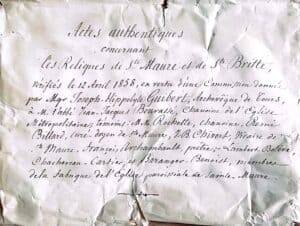 Actes authentiques
concernant
les Reliques de Ste Maure et de Ste Britte,
vérifiés le 12 Avril 1858, en vertu d'une Commission donnée
par Mgr Joseph-Hippolyte Guibert, Archevêque de Tours,
à M. l'abbé Jean-Jacques Bourassé, Chanoine de l'Eglise
Métropolitaine; témoins: M.M. Rochette, chanoine,
Billard, curé doyen de Ste Maure, Mairie de
Ste Maure, François Archambault, prêtre; Lambert
Cartier, et Béranger Benoist, membres
de la fabrique de l'Eglise paroissiale de Sainte Maure.